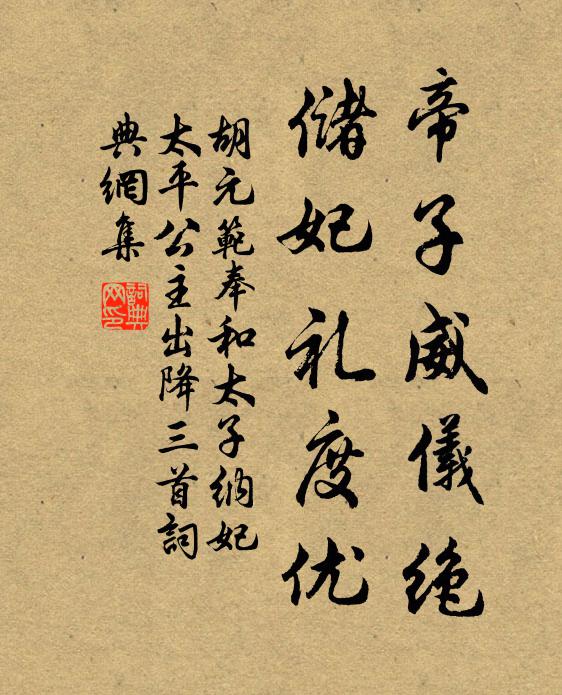 帝子威儀绝
儲妃礼度优
胡元範奉和太子纳妃
太平公主出降三首詞
典網集
詞典网印